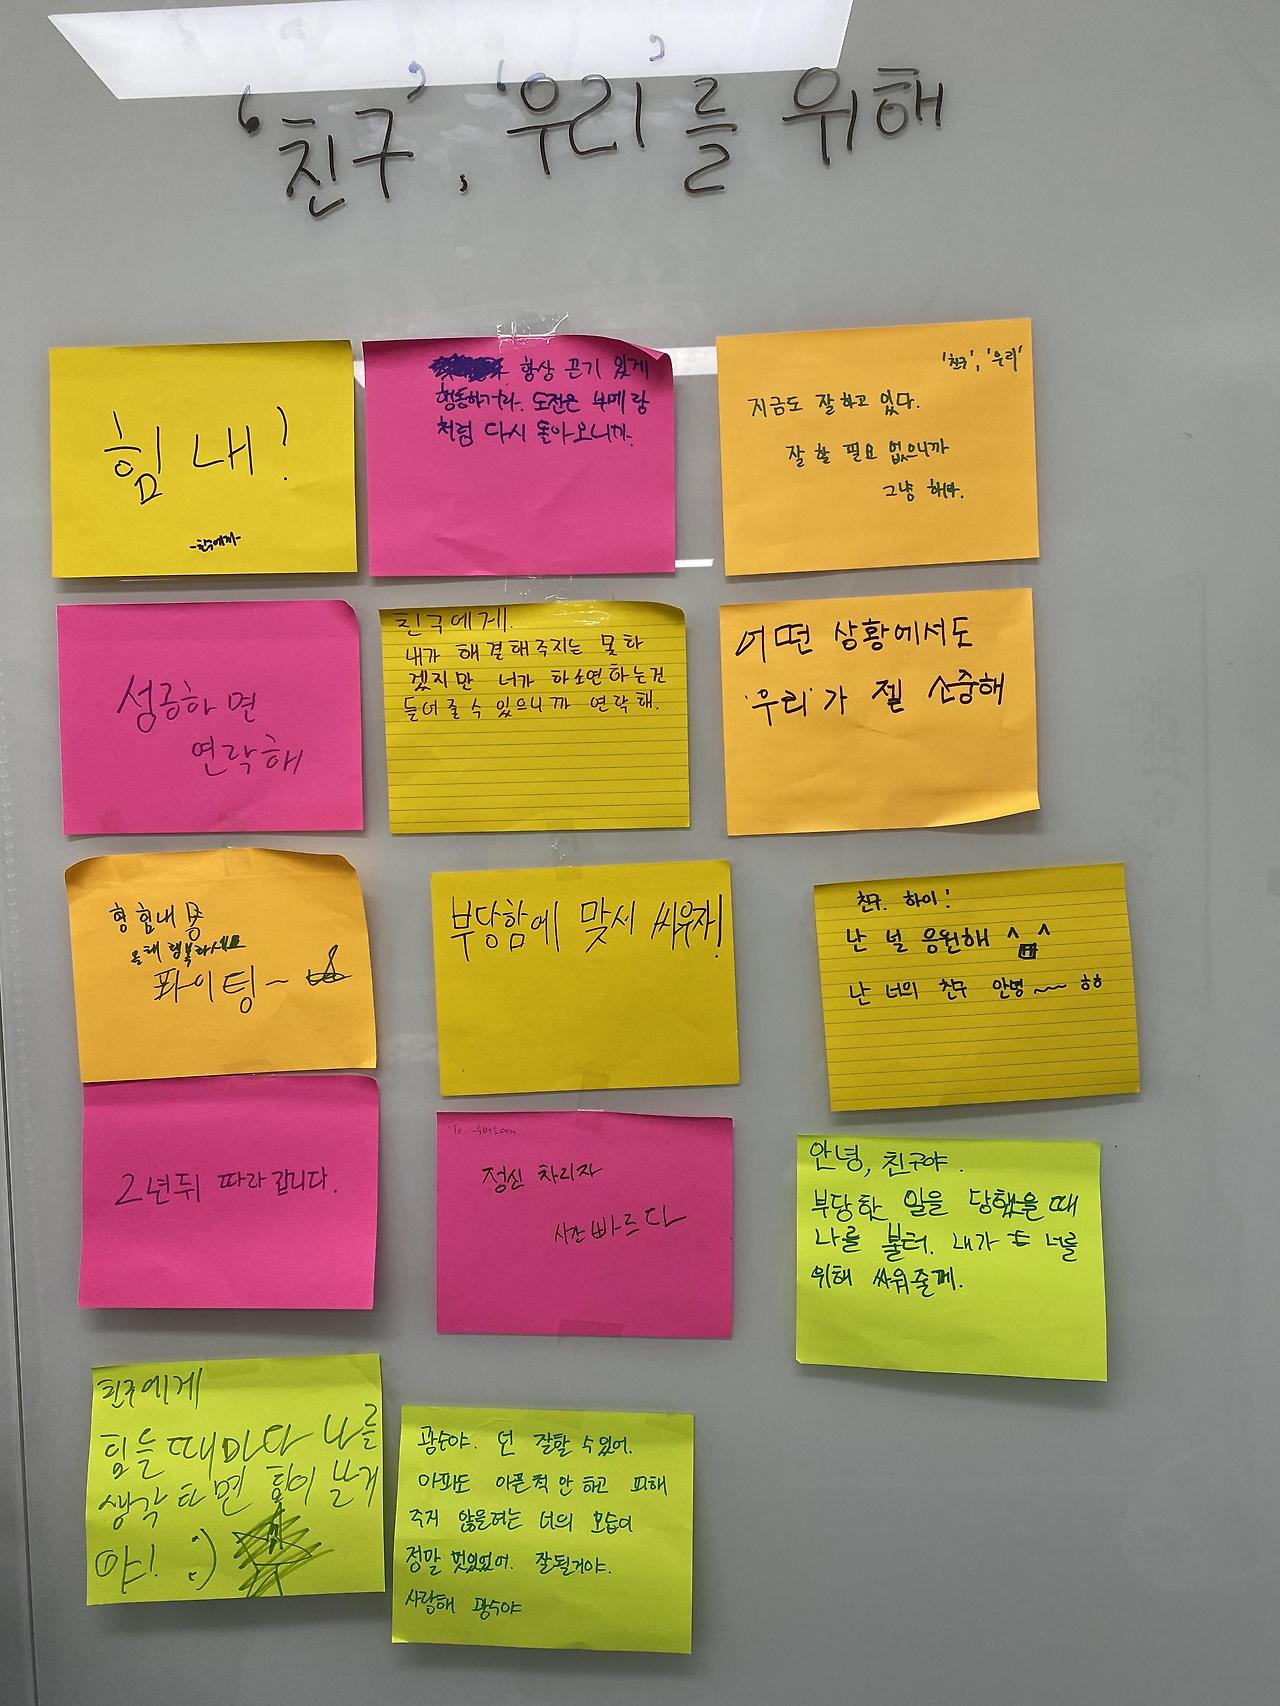 '친구', '우리'를 위해
힘내!
-친구에게-
항상 끈기 있게
행동하거라. 도전은 부메랑
처럼 다시 돌아오니까.
'친구', '우리'
지금도 잘하고 있다.
잘 할 필요 없으니까
그냥 해라.
성공하면
연락해
친구에게.
내가 해결해주지는 못하
겠지만 너가 하소연하는건
들어줄 수 있으니까 연락해.
어떤 상황에서도
'우리'가 젤 소중해
형 힘내용
올해 행복하세요
파이팅~
부당함에 맞서 싸우자!
친구 하이!
난 널 응원해 ^ㅁ^
난 너의 친구 안녕~~ ㅎㅎ
2년뒤 따라갑니다.
To.
정신 차리자
시간 빠르다
안녕, 친구야.
부당한 일을 당했을 때
나를 불러. 내가 너를
위해 싸워줄게.
친구에게
힘들 때마다 나를
생각하면 힘이 날거
야! :)
광수야. 넌 잘할 수 있어.
아파도 아픈척 안 하고 피해
주지 않을려는 너의 모습이
정말 멋있었어. 잘될거야.
사랑해 광수야